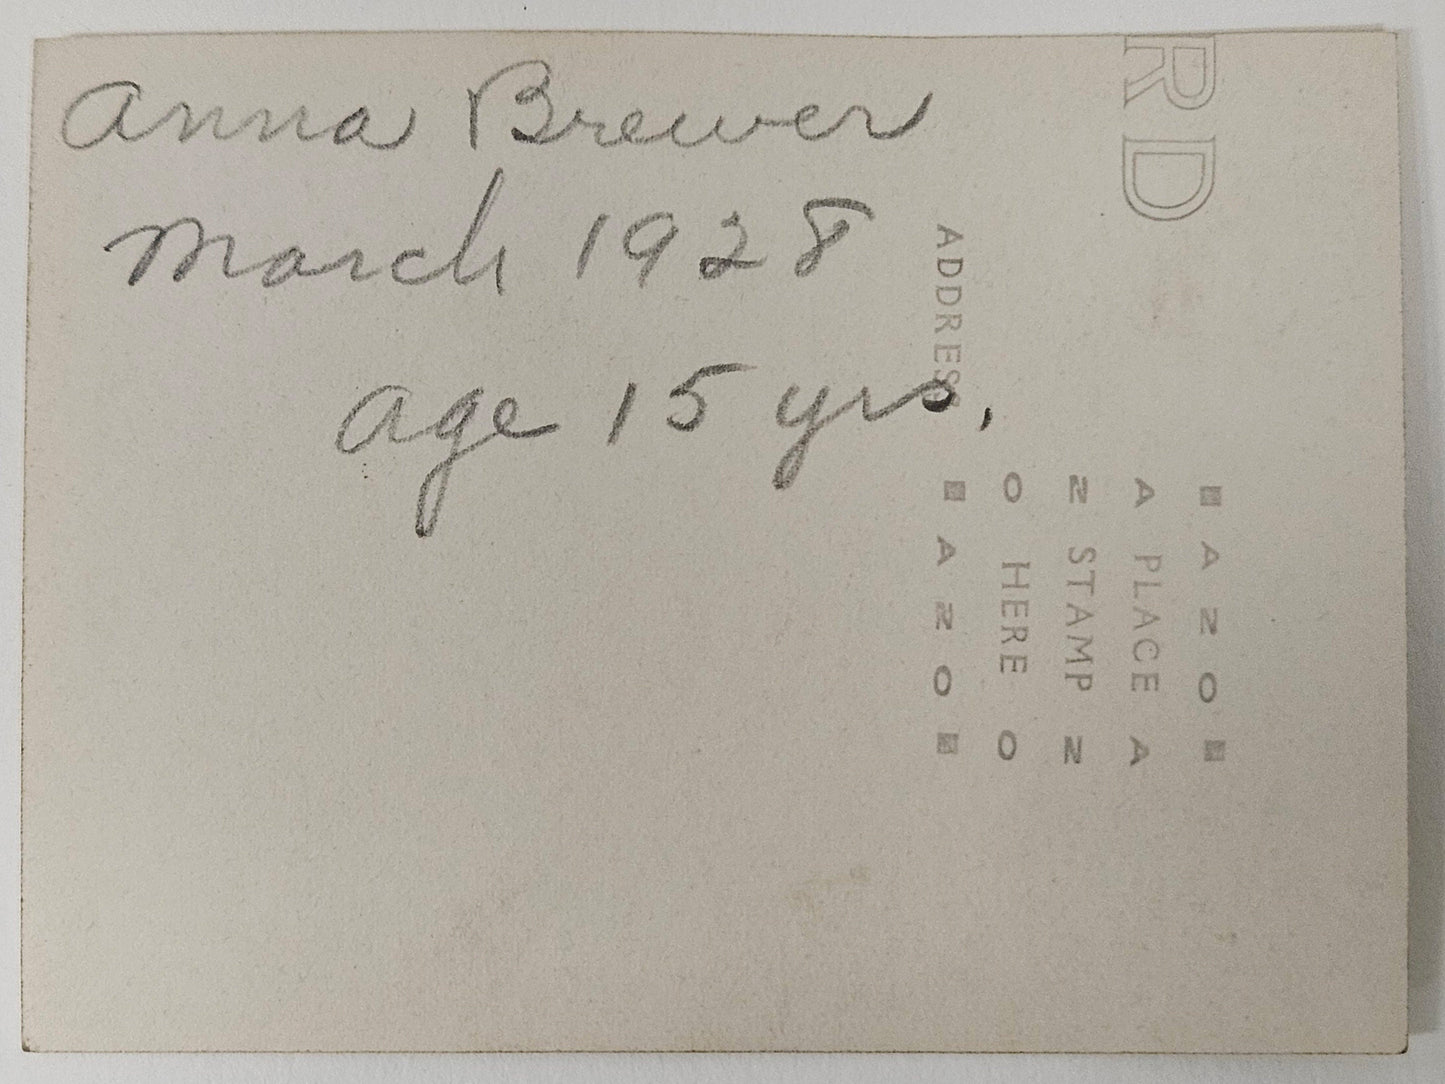 Anna Brewer
March 1928
age 15 yrs.
RD
ADDRESS
AZO
A PLACE A
Z STAMP Z
O HERE O
AZO